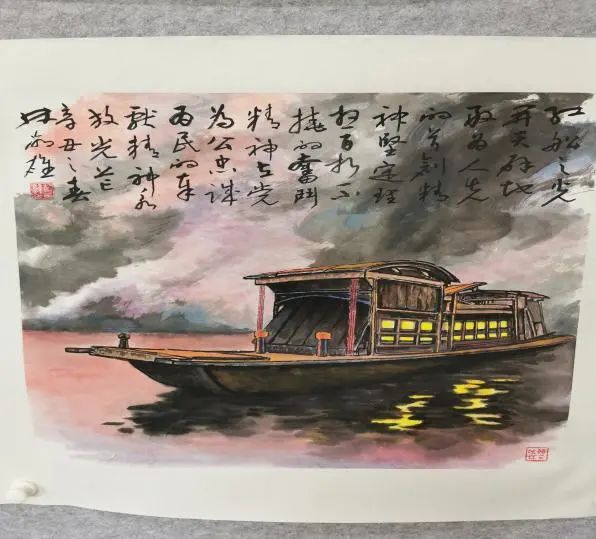 红船之光
开天辟地
敢为人先
的首创精
神坚定理
想百折不
撓的奮鬥
精神立党
为公忠诚
为民的奉
献精神永
放光芒
辛丑之春